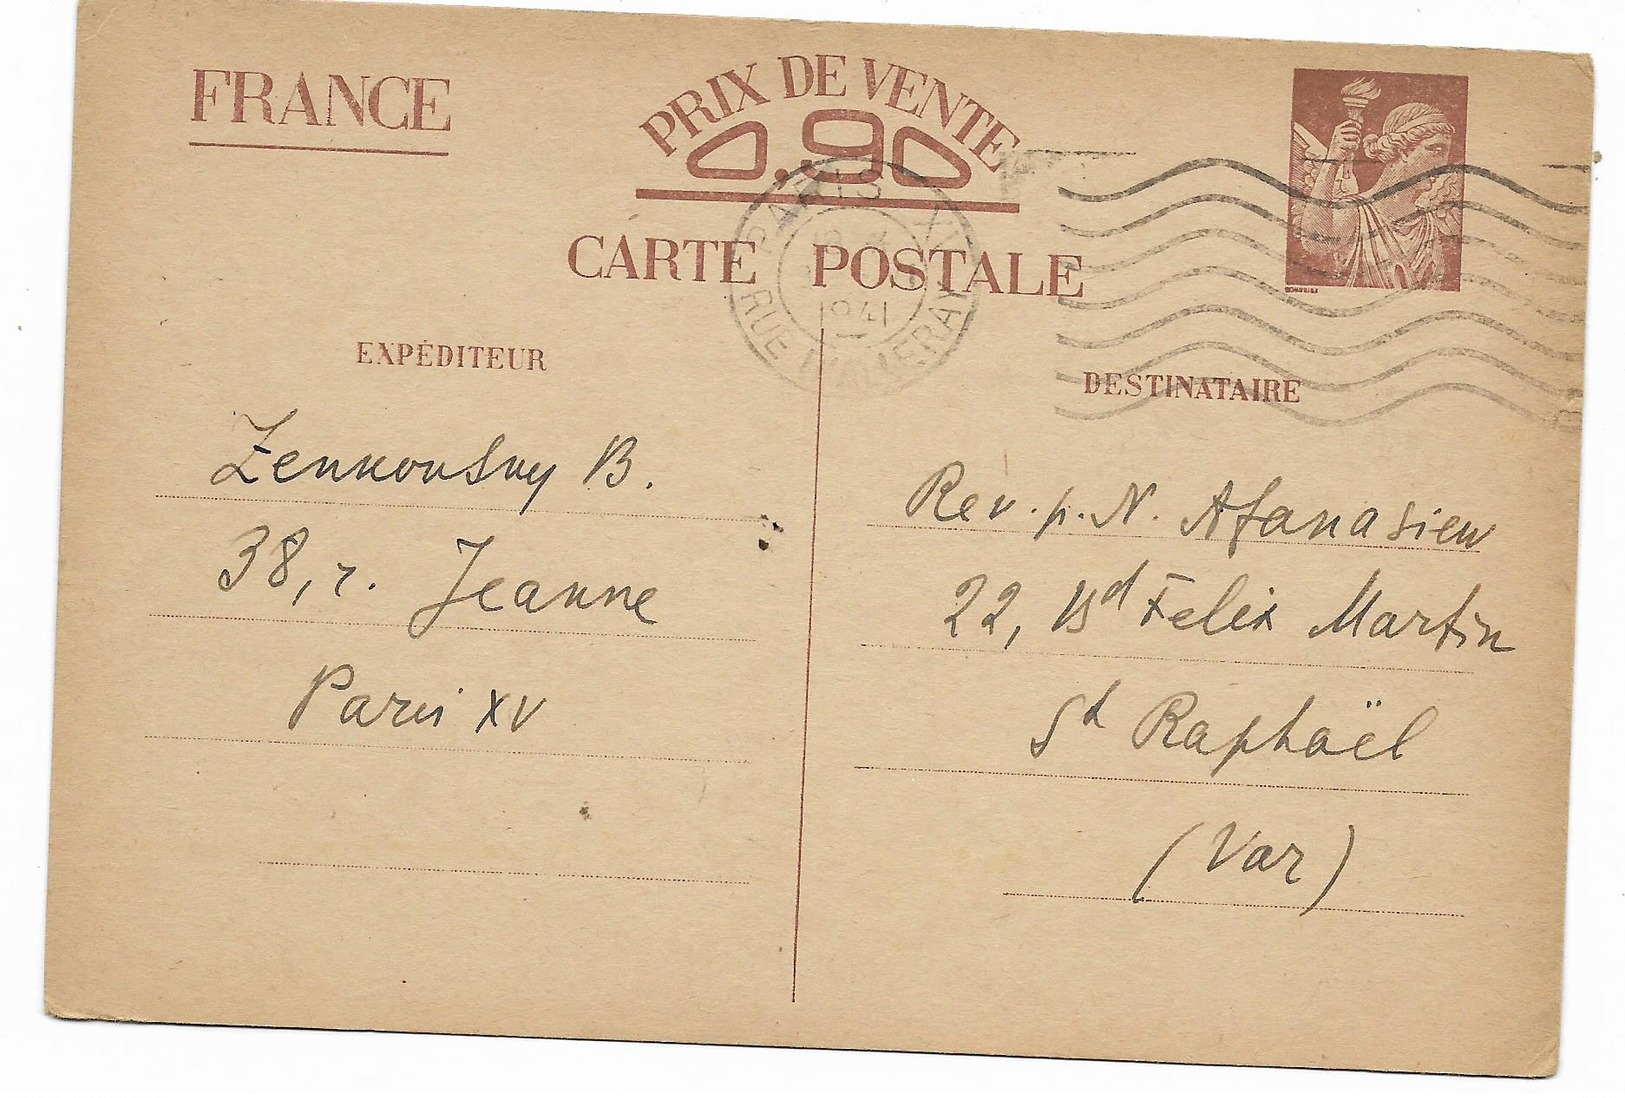 FRANCE
PRIX DE VENTE
0.90
CARTE POSTALE
PARIS XV
1941
RUE
EXPÉDITEUR
Zenkovsky B.
38, r. Jeanne
Paris XV
DESTINATAIRE
Rev. p. N. Afanasiew
22, Bd Felix Martin
St Raphaël
(Var)